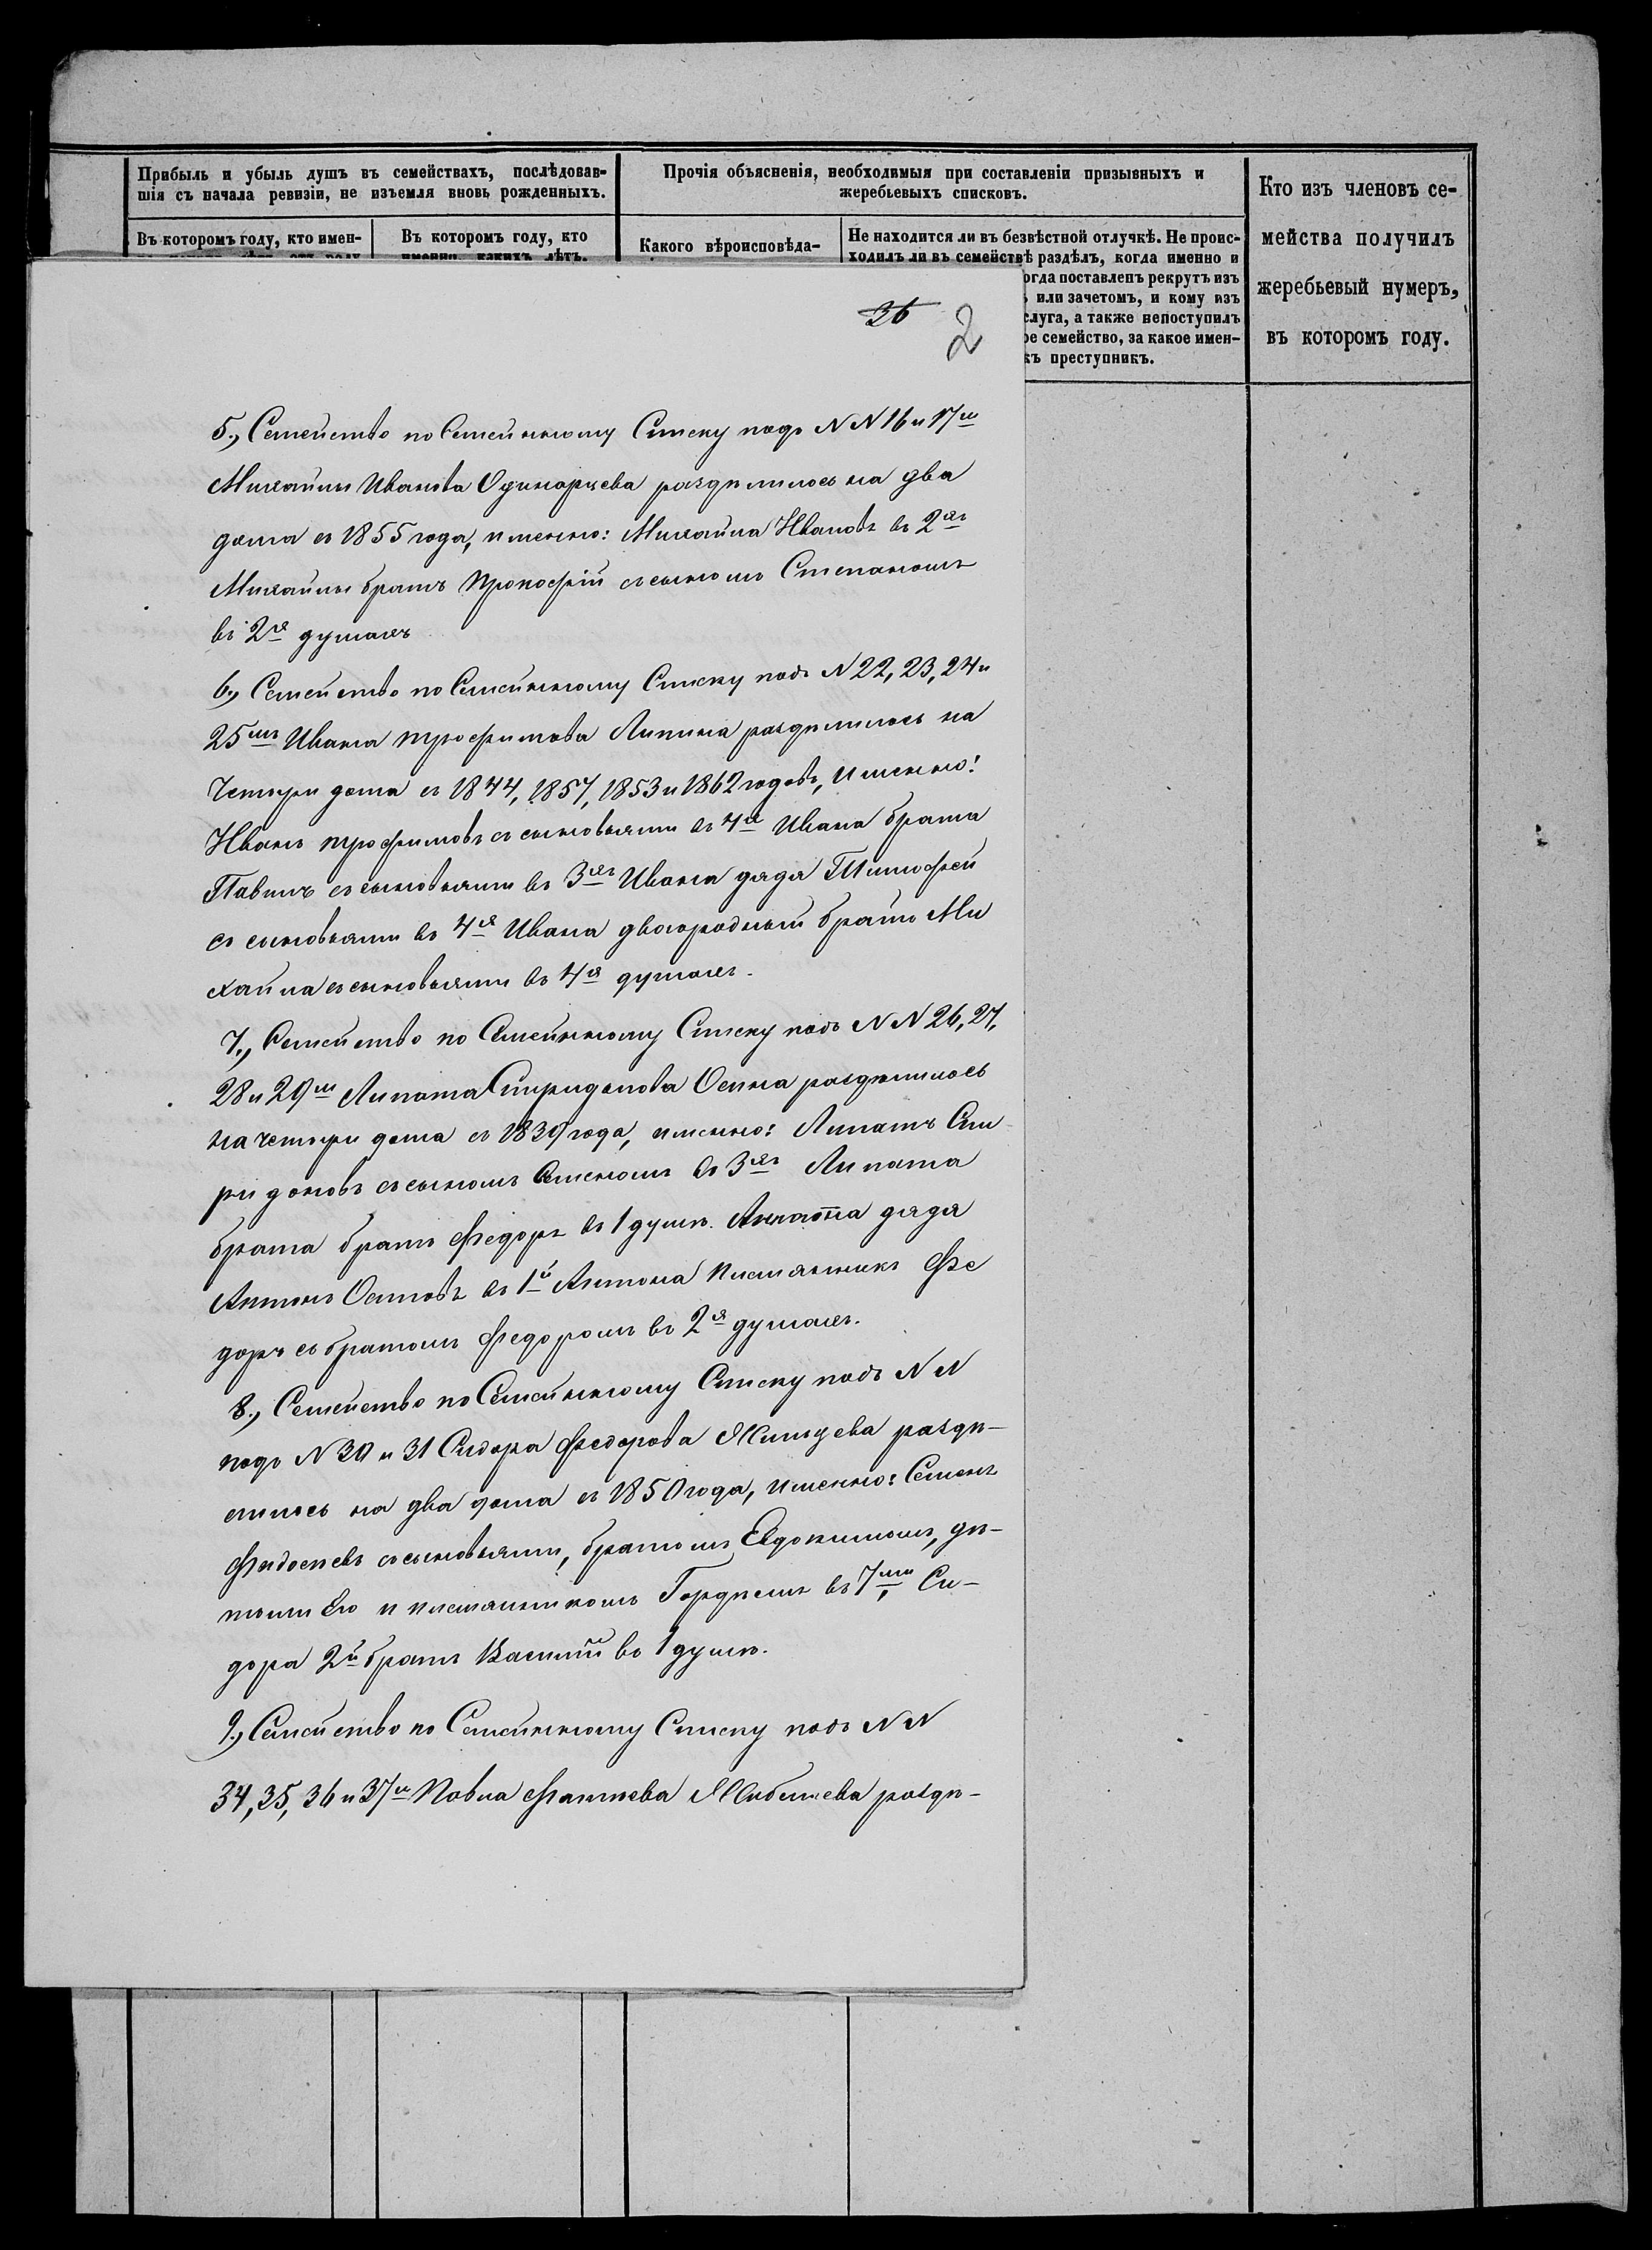 Прибыль и убыль душъ въ семействахъ, послѣдовав-
шія съ начала ревизіи, не изъемля вновь рожденныхъ.
Прочія объясненія, необходимыя при составленіи призывныхъ и
жеребьевыхъ списковъ.
Кто изъ членовъ се-
мейства получилъ
жеребьевый нумеръ,
въ которомъ году.
Въ которомъ году, кто имен-
Въ которомъ году, кто
именно, какихъ лѣтъ.
Какого вѣроисповѣда-
Не находится ли въ безвѣстной отлучкѣ. Не проис-
ходилъ ли въ семействѣ раздѣлъ, когда именно и
огда поставленъ рекрутъ изъ
или зачетомъ, и кому изъ
слуга, а также непоступилъ
ое семейство, за какое имен-
къ преступникъ.
36
2
5., Семейство по Семейнному Списку подъ N N 16 и 17м
Михаилы Иванова Одинарцева раздѣлилось на два
дома съ 1855 года, именно: Михаила Ивановъ въ 2хъ
Михаилы братъ Прокофій съ сыномъ Степаномъ
въ 2х душахъ
6., Семейство по Семейнному Списку подъ N 22, 23, 24 и
25мъ Ивана Трофимова Липина раздѣлилось на
Четыри дома съ 1844, 1857, 1853 и 1862 годовъ, Именно:
Иванъ Трофимовъ съ сыновьями въ 4х Ивана брата
Павилъ съ сыновьями въ 3хъ Ивана дядя Тимофей
съ сыновьями въ 4х Ивана двоюродный братъ Ми
хайла съ сыновьями въ 4х душахъ.
7., Семейство по Семейнному Списку подъ N N 26, 27,
28 и 29м Липата Спиридонова Осина раздѣлилось
на четыри дома съ 1839 года, именно: Липатъ Спи
ридоновъ съ сыномъ Семеномъ въ 3хъ Липата
брата братъ Федоръ въ 1 душѣ. Липата дядя
Антонъ Осиповъ въ 1й Антона племянникъ Фе
доръ съ братомъ Федоромъ въ 2х душахъ.
8., Семейство по Семейнному Списку подъ N N
подъ N 30 и 31 Сидора Федорова раздѣ-
лилось на два дома съ 1850 года, именно: Семенъ
съ сыновьями, братомъ Евдокимомъ, дѣ-
тьми Его и племянникомъ Гордѣемъ въ 7ми, Си-
дора 2й братъ Василій въ 1 душѣ.
9., Семейство по Семейнному Списку подъ N N
34, 35, 36 и 37м Павла раздѣ-